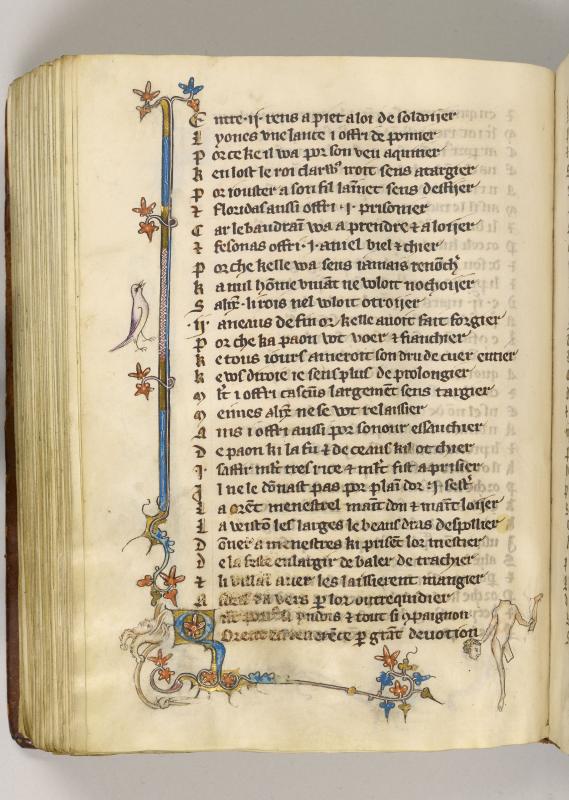 Entre .ii. rens a piet a loi de soldoijer
Lyones une lance i offri de pomier
Por ce ke il wa por son veu aquitier
K en lost le roi clarꝰ iroit sens atargier
Por iouster a son fil lainet sens deslijer
⁊ floridas aussi offri .i. prisonier
Car le baudrain wa a prendre ⁊ a loijer
⁊ fesonas offri .i. aniel biel ⁊ chier
Por che kelle wa sens iamais
K a nul hōme vivāt ne woloit nochoijer
S li rois nel woloit otroijer
.ii. aneaus de fin or kelle avoit fait forgier
Por che ka paon vot voer ⁊ fianchier
Ke tous iours ameroit son dru de cuer entier
Ke vos diroie ie sens plus de prolongier
i offri cascuns largement sens targier
ne se vot relaissier
Ains i offri aussi por sonour essauchier
De paon ki la fu ⁊ de ceaus kil ot chier
.I. tres rice ⁊ fist a prisier
Il ne le dōnast pas por plain dor .i. sest
La orēt menestrel maīt don ⁊ maīt loijer
La veist on les larges le beaus dras despollier
Dōner a menestres ki prisēt lor mestier
De la feste enlargir de baler de trachier
⁊ li villain aver les laissierent mangier
A vers ꝑ lor outrequidier
⁊ tout si ꝯpaignon
ꝑ grāt devotion